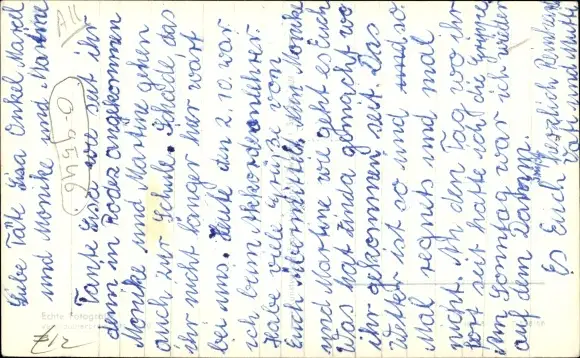 Liebe Tate Lisa Onkel Marcel
und Monike und Martine
Tante Lisa wie seit ihr
denn in Rodez angekommen
Monike und Martine gehen
auch zur Schule. Schade, das
ihr nicht länger hier wart
bei uns. Heute den 2.10. war
ich beim Akkordeonlehrer.
Habe viele Grüße von
Euch übermittelt. Nun Monike
und Martine wie geht es Euch
Was hat Linda gemacht wo
ihr gekommen seit. Das
Wetter ist so und so.
Mal regnets und mal
nicht. An den Tag wo ihr
fort seit hatte ich die Grippe
Am Sonntag war ich wieder
auf dem Damm.
Es Euch herzlich
Vati und Mutti
All
0-9546
Echte Fotogra
7/2